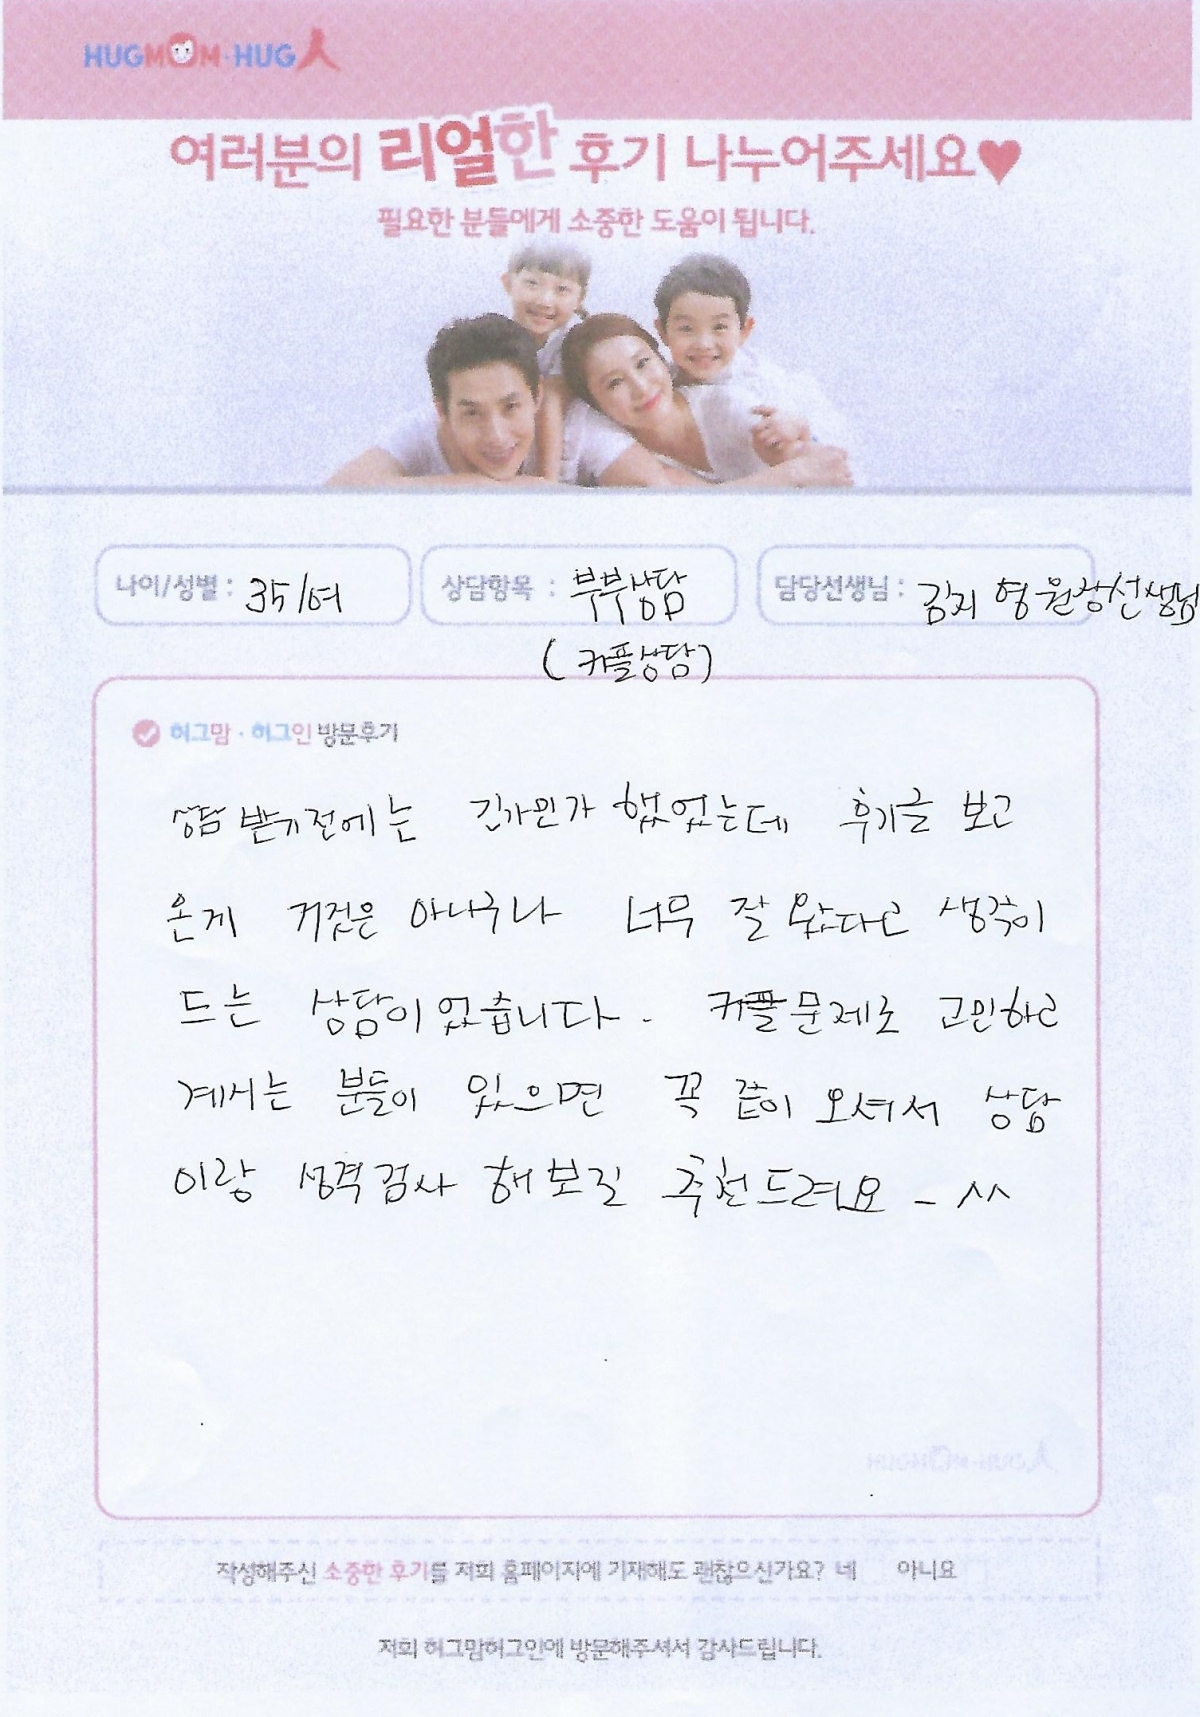 HUGMOM·HUG人
여러분의 리얼한 후기 나누어주세요♥
필요한 분들에게 소중한 도움이 됩니다.
나이/성별 : 35/여
상담항목 : 부부상담
담당선생님 : 김지영원장선생님
(커플상담)
허그맘·허그인 방문후기
상담 받기전에는 긴가민가 했었는데 후기글 보고
온게 거짓은 아니구나 너무 잘 왔다고 생각이
드는 상담이었습니다. 커플문제로 고민하고
계시는 분들이 있으면 꼭 같이 오셔서 상담
이랑 성격검사 해보길 추천드려요 - ^^
작성해주신 소중한 후기를 저희 홈페이지에 기재해도 괜찮으신가요? 네 아니요
저희 허그맘허그인에 방문해주셔서 감사드립니다.